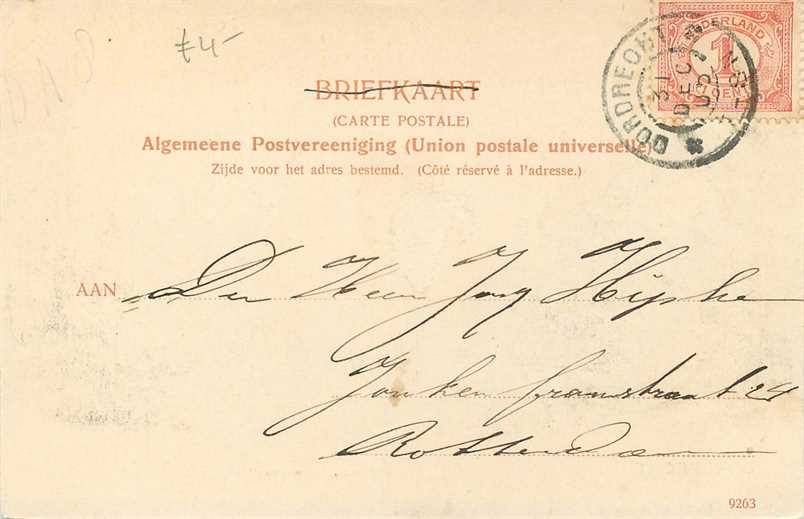 £4-
NEDERLAND
1
CENT
DORDRECHT
31 DEC 03
BRIEFKAART
(CARTE POSTALE)
Algemeene Postvereeniging (Union postale universelle)
Zijde voor het adres bestemd. (Côté réservé à l'adresse.)
AAN Den Heer Jong
Jonker fransstraat 24
Rotterdam
9263